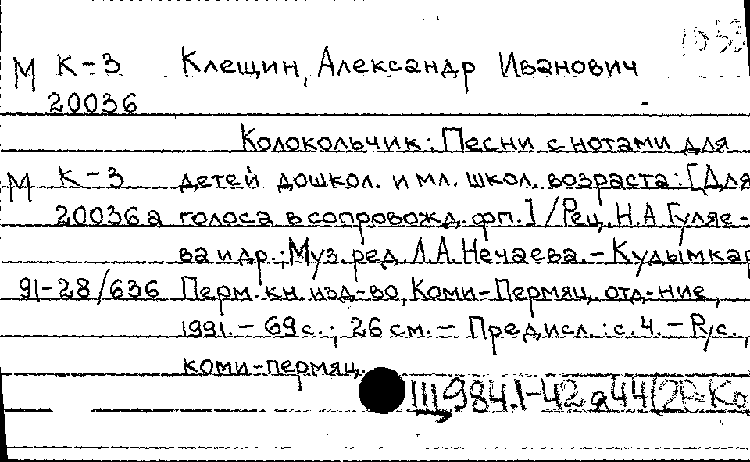 1033
М К-3 Клещин, Александр Иванович
20036
Колокольчик: Песни с нотами для
М К-3 детей дошкол. и мл. школ. возраста: [Для
20036а голоса в сопровожд. фп.] / Рец. Н.А. Гуляе-
ва и др.; Муз. ред. Л.А. Нечаева. - Кудымкар
91-28/636 Перм. кн. изд-во, Коми-Пермяц. отд-ние,
1991. - 69 с.; 26 см. - Предисл.: с. 4. - Р/с.,
коми-пермяц.
Щ984.1-42я44(2Р-Ко